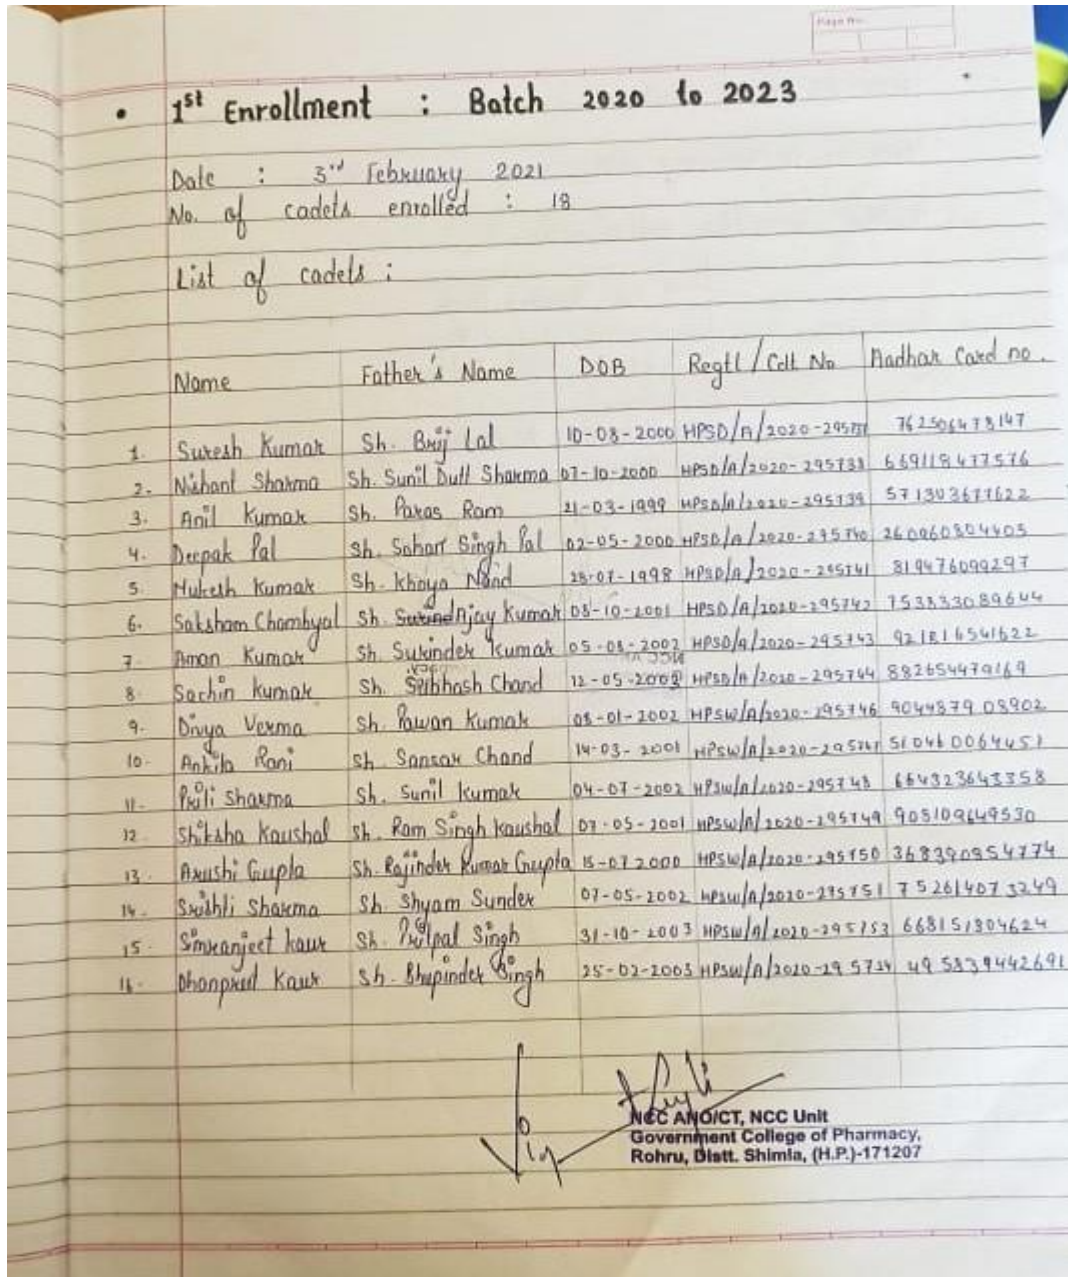 Page No.
• 1st Enrollment : Batch 2020 to 2023
Date : 3rd February 2021
No. of cadets enrolled : 18
List of cadets :
Name Father's Name DOB Regtl / Cdt No Aadhar Card no.
1. Suresh Kumar Sh. Brij Lal 10-08-2000 762506478147
2. Nishant Sharma Sh. Sunil Dutt Sharma 07-10-2000 HPSD/A/2020-295738 669118477576
3. Anil Kumar Sh. Paras Ram 21-03-1999 HPSD/A/2020-295739 571303677622
4. Deepak Pal Sh. Singh Pal 02-05-2000 HPSD/A/2020-295740 260060804403
5. Mukesh Kumar Sh. Khaya Nand 28-07-1998 HPSD/A/2020-295741 819476099297
6. Saksham Chambyal Sh. Ajay Kumar 08-10-2001 HPSD/A/2020-295742 753833089644
7. Aman Kumar Sh. Surinder Kumar 05-08-2002 HPSD/A/2020-295743 921816541622
8. Sachin Kumar Sh. Subhash Chand HPSD/A/2020-295744 882654479169
9. Divya Verma Sh. Pawan Kumar 08-01-2002 HPSW/A/2020-295746 904487908902
10. Ankita Rani Sh. Sansar Chand 14-03-2001 510460064451
11. Priti Sharma Sh. Sunil Kumar 04-07-2002 HPSW/A/2020-295748 664323643358
12. Shiksha Kaushal Sh. Ram Singh Kaushal 07-05-2001 HPSW/A/2020-295749 905109649530
13. Arushi Gupta Sh. Rajinder Kumar Gupta HPSW/A/2020-295750 368390954774
14. Srishti Sharma Sh. Shyam Sunder 07-05-2002 HPSW/A/2020-295751 752614073249
15. Simranjeet kaur Sh. Pritpal Singh 31-10-2003 HPSW/A/2020-295753 668151804624
16. Dhanpreet Kaur Sh. Bhupinder Singh 25-02-2003 495839442691
NCC ANO/CT, NCC Unit
Government College of Pharmacy,
Rohru, Distt. Shimla, (H.P.)-171207